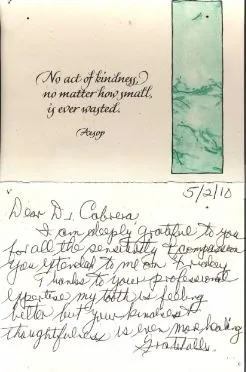 No act of kindness,
no matter how small,
is ever wasted.
Aesop
5/2/10
Dear Dr. Cabrera
I am deeply grateful to you
for all the sensitivity & compassion
you extended to me on Friday
Thanks to your professional
expertise my tooth is feeling
better but your kindness &
thoughtfulness is even more healing
Gratefully